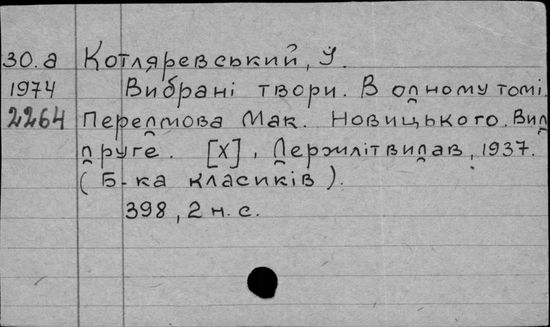 30.а Котляревський, У.
1974 Вибрані твори. В одному томі.
2264 Передмова Мак. Новицького. Вид
друге. [Х], Держлітвидав, 1937.
(Б-ка класиків).
398, 2 н. с.